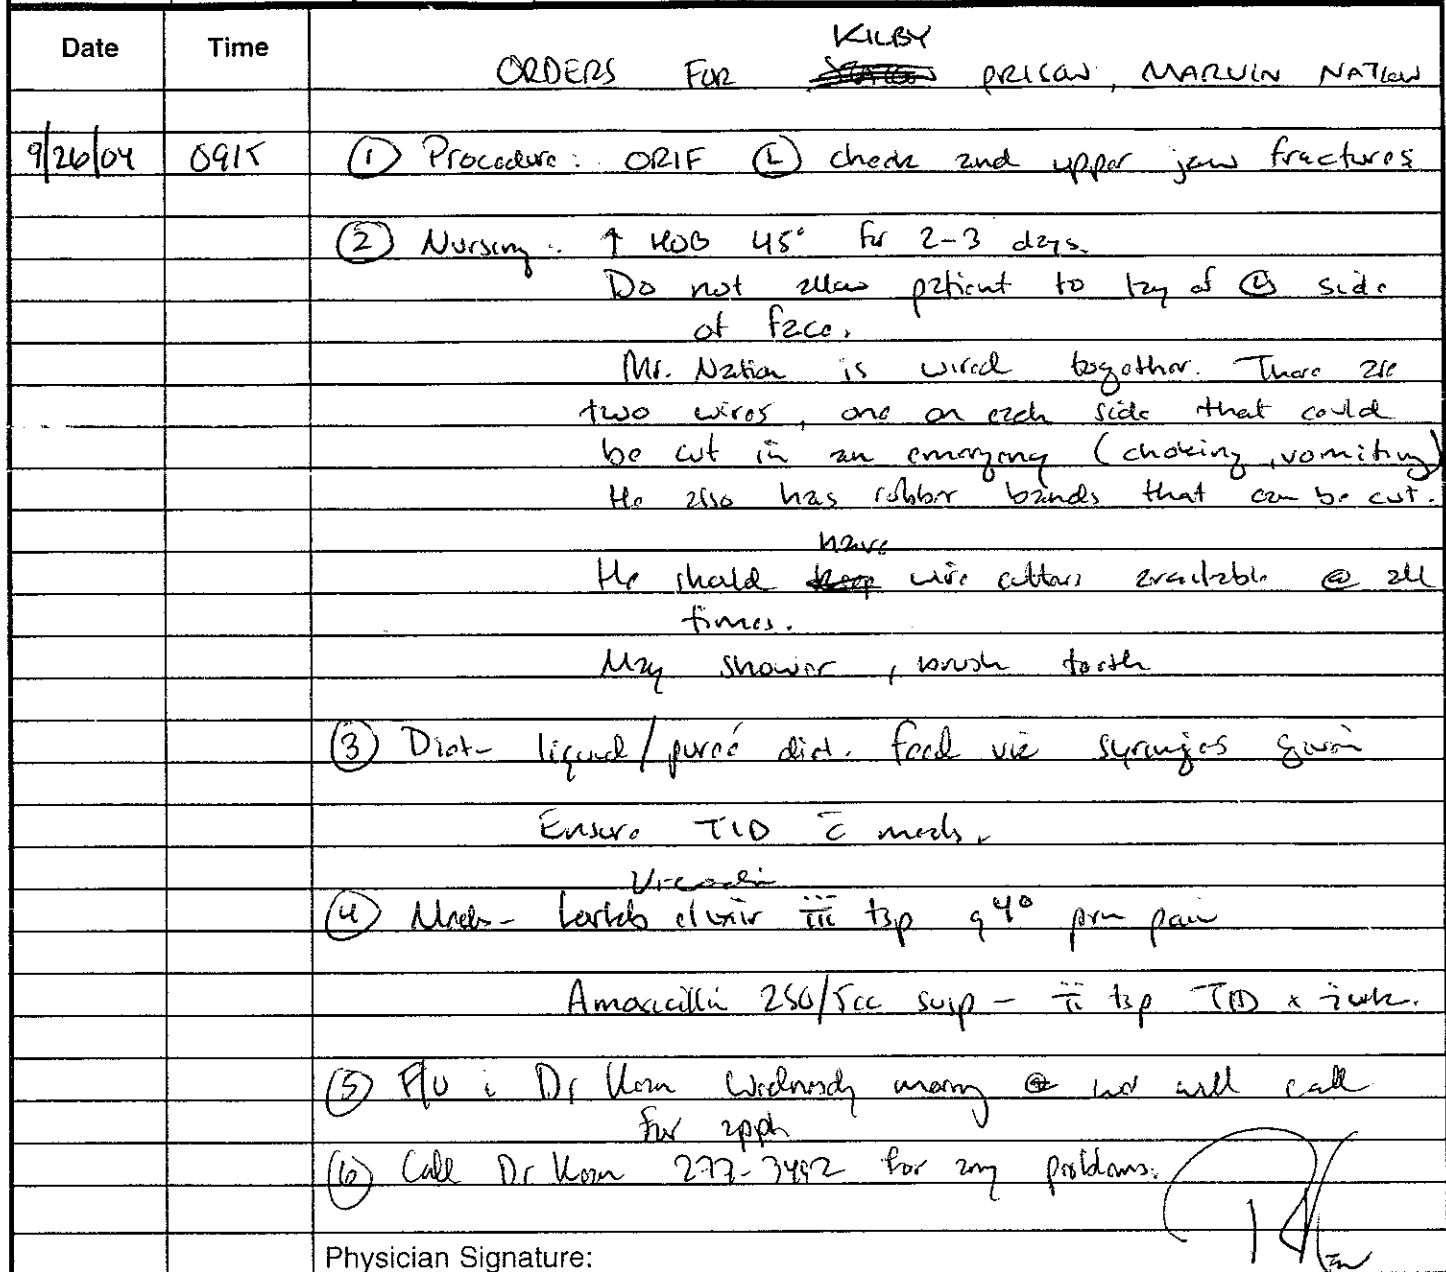 Date Time
KILBY
ORDERS FOR PRISON, MARVIN NATION
9/26/04 0915 ① Procedure: ORIF Ⓛ cheek and upper jaw fractures
② Nursing: ↑ HOB 45° for 2-3 days.
Do not allow patient to lay of Ⓛ side
of face.
Mr. Nation is wired together. There are
two wires, one on each side that could
be cut in an emergency (choking, vomiting)
He also has rubber bands that can be cut.
have
He should keep wire cutters available @ all
times.
May shower, brush teeth
③ Diet- liquid/pureé diet. feed via syringes given
Ensure TID c̄ meals.
Vicodin
④ Meds- Lortab elixir iii tsp q 4° prn pain
Amoxicillin 250/5cc susp - ii tsp TID x i wk.
⑤ F/U c̄ Dr Wednesday @ will call
for appt
⑥ Call Dr 277-3492 for any problems.
Physician Signature: